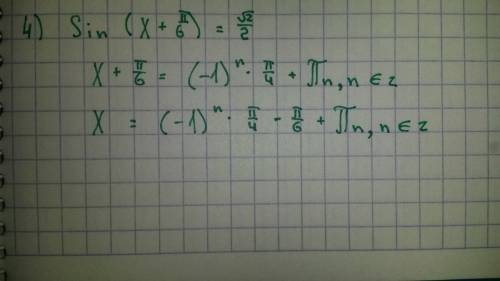 4) Sin (x + π/6) = √2/2
x + π/6 = (-1)ⁿ · π/4 + πn, n ∈ z
x = (-1)ⁿ · π/4 - π/6 + πn, n ∈ z